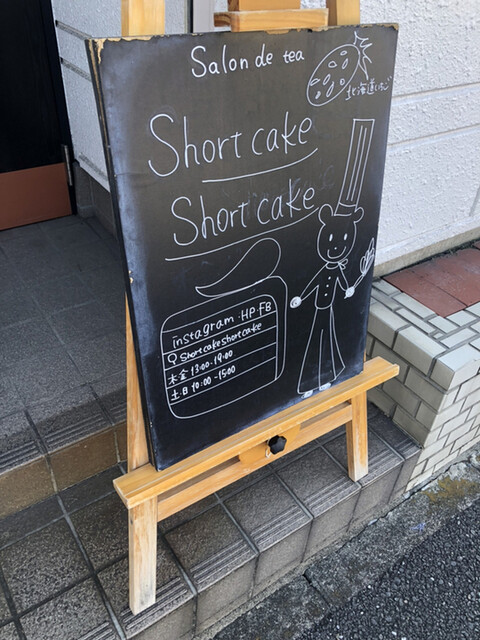 Salon de tea
北海道いちご
Short cake
Short cake
instagram・HP・FB
Shortcakeshortcake
木・金 13:00-19:00
土・日 10:00-15:00